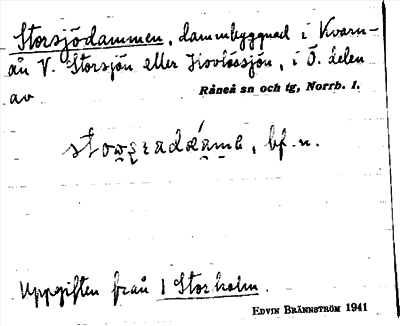 Storsjödammen, dammbyggnad i Kvarn-
ån V. Storsjön eller Hovlössjön, i Ö. delen
av
Råneå sn och tg, Norrb. l.
bf. n.
Uppgiften från 1 Storholm.
EDVIN BRÄNNSTRÖM 1941